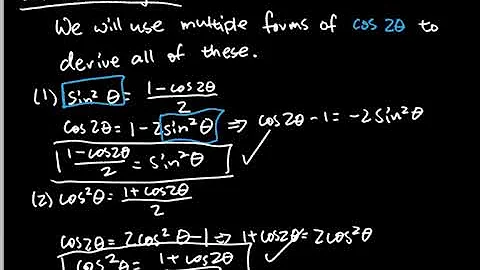 We will use multiple forms of cos 2θ to
derive all of these.
(1) sin²θ = (1-cos2θ)/2
cos2θ = 1-2sin²θ ⇒ cos2θ-1 = -2sin²θ
(1-cos2θ)/2 = sin²θ ✓
(2) cos²θ = (1+cos2θ)/2
cos2θ = 2cos²θ-1 ⇒ 1+cos2θ = 2cos²θ
cos²θ = 1+cos2θ ✓